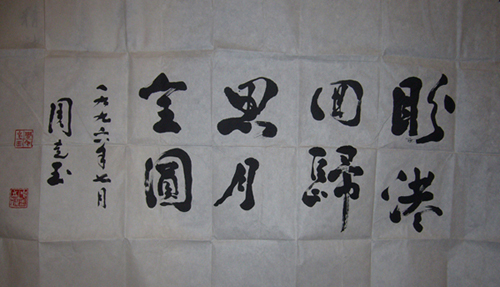 盼港
回歸
思月
全圓
一九九六年七月
周克玉